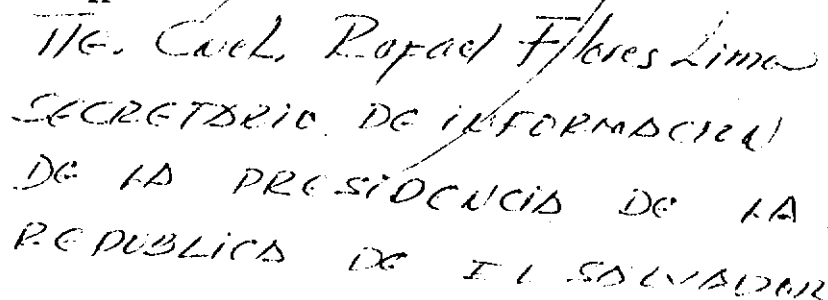 TTE. CNEL. Rafael Flores Lima
SECRETARIO DE INFORMACION
DE LA PRESIDENCIA DE LA
REPUBLICA DE EL SALVADOR